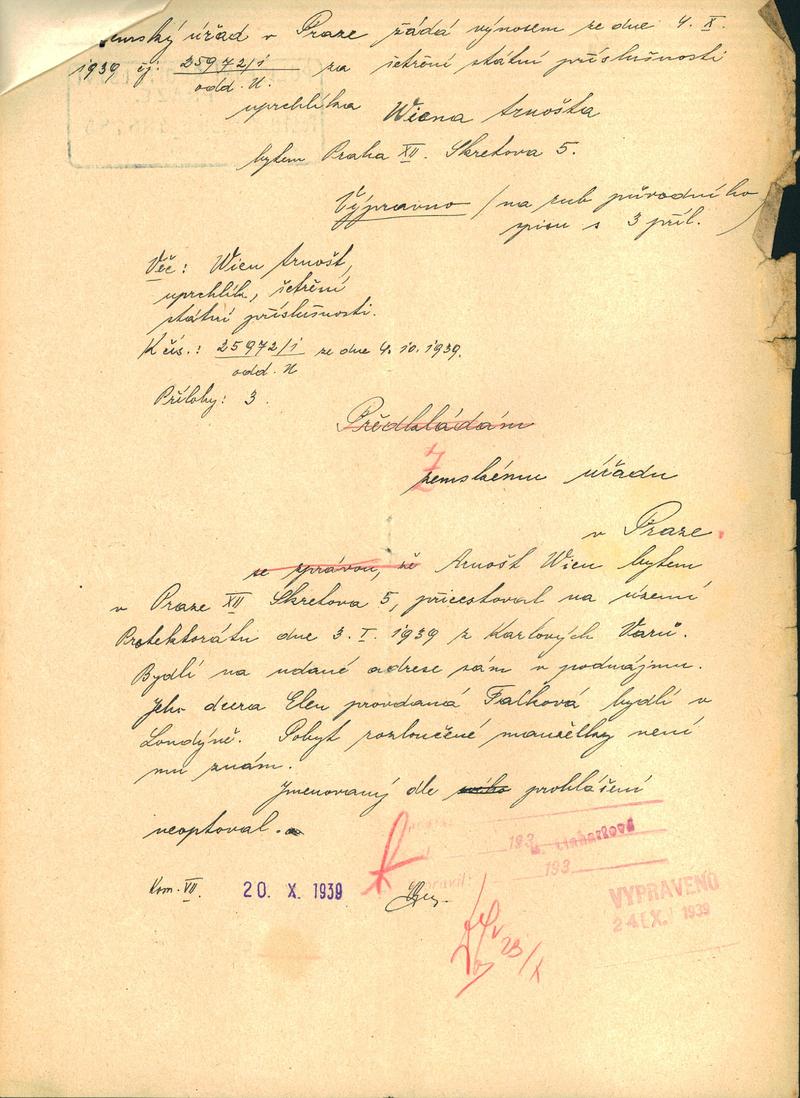 Zemský úřad v Praze žádá výnosem ze dne 4. X.
1939 čj: 25972/1 za šetření státní příslušnosti
odd. II.
uprchlíka Wiena Arnošta
bytem Praha XII. Skretova 5.
Výpravno / na rub původního
spisu s 3 příl.
Věc: Wien Arnošt,
uprchlík, šetření
státní příslušnosti.
K čís.: 25972/1 ze dne 4. 10. 1939.
odd. II
Přílohy: 3.
Předkládám
Zemskému úřadu
v Praze.
se zprávou, že Arnošt Wien bytem
v Praze XII Skretova 5, přicestoval na území
Protektorátu dne 3. I. 1939 z Karlových Varů.
Bydlí na udané adrese sám v podnájmu.
Jeho dcera Elen provdaná Falková bydlí v
Londýně. Pobyt rozloučené manželky není
mu znám.
Jmenovaný dle svého prohlášení
neoptoval.
193
193
Kom. VII. 20. X. 1939
VYPRAVENO
24. X. 1939
23/X